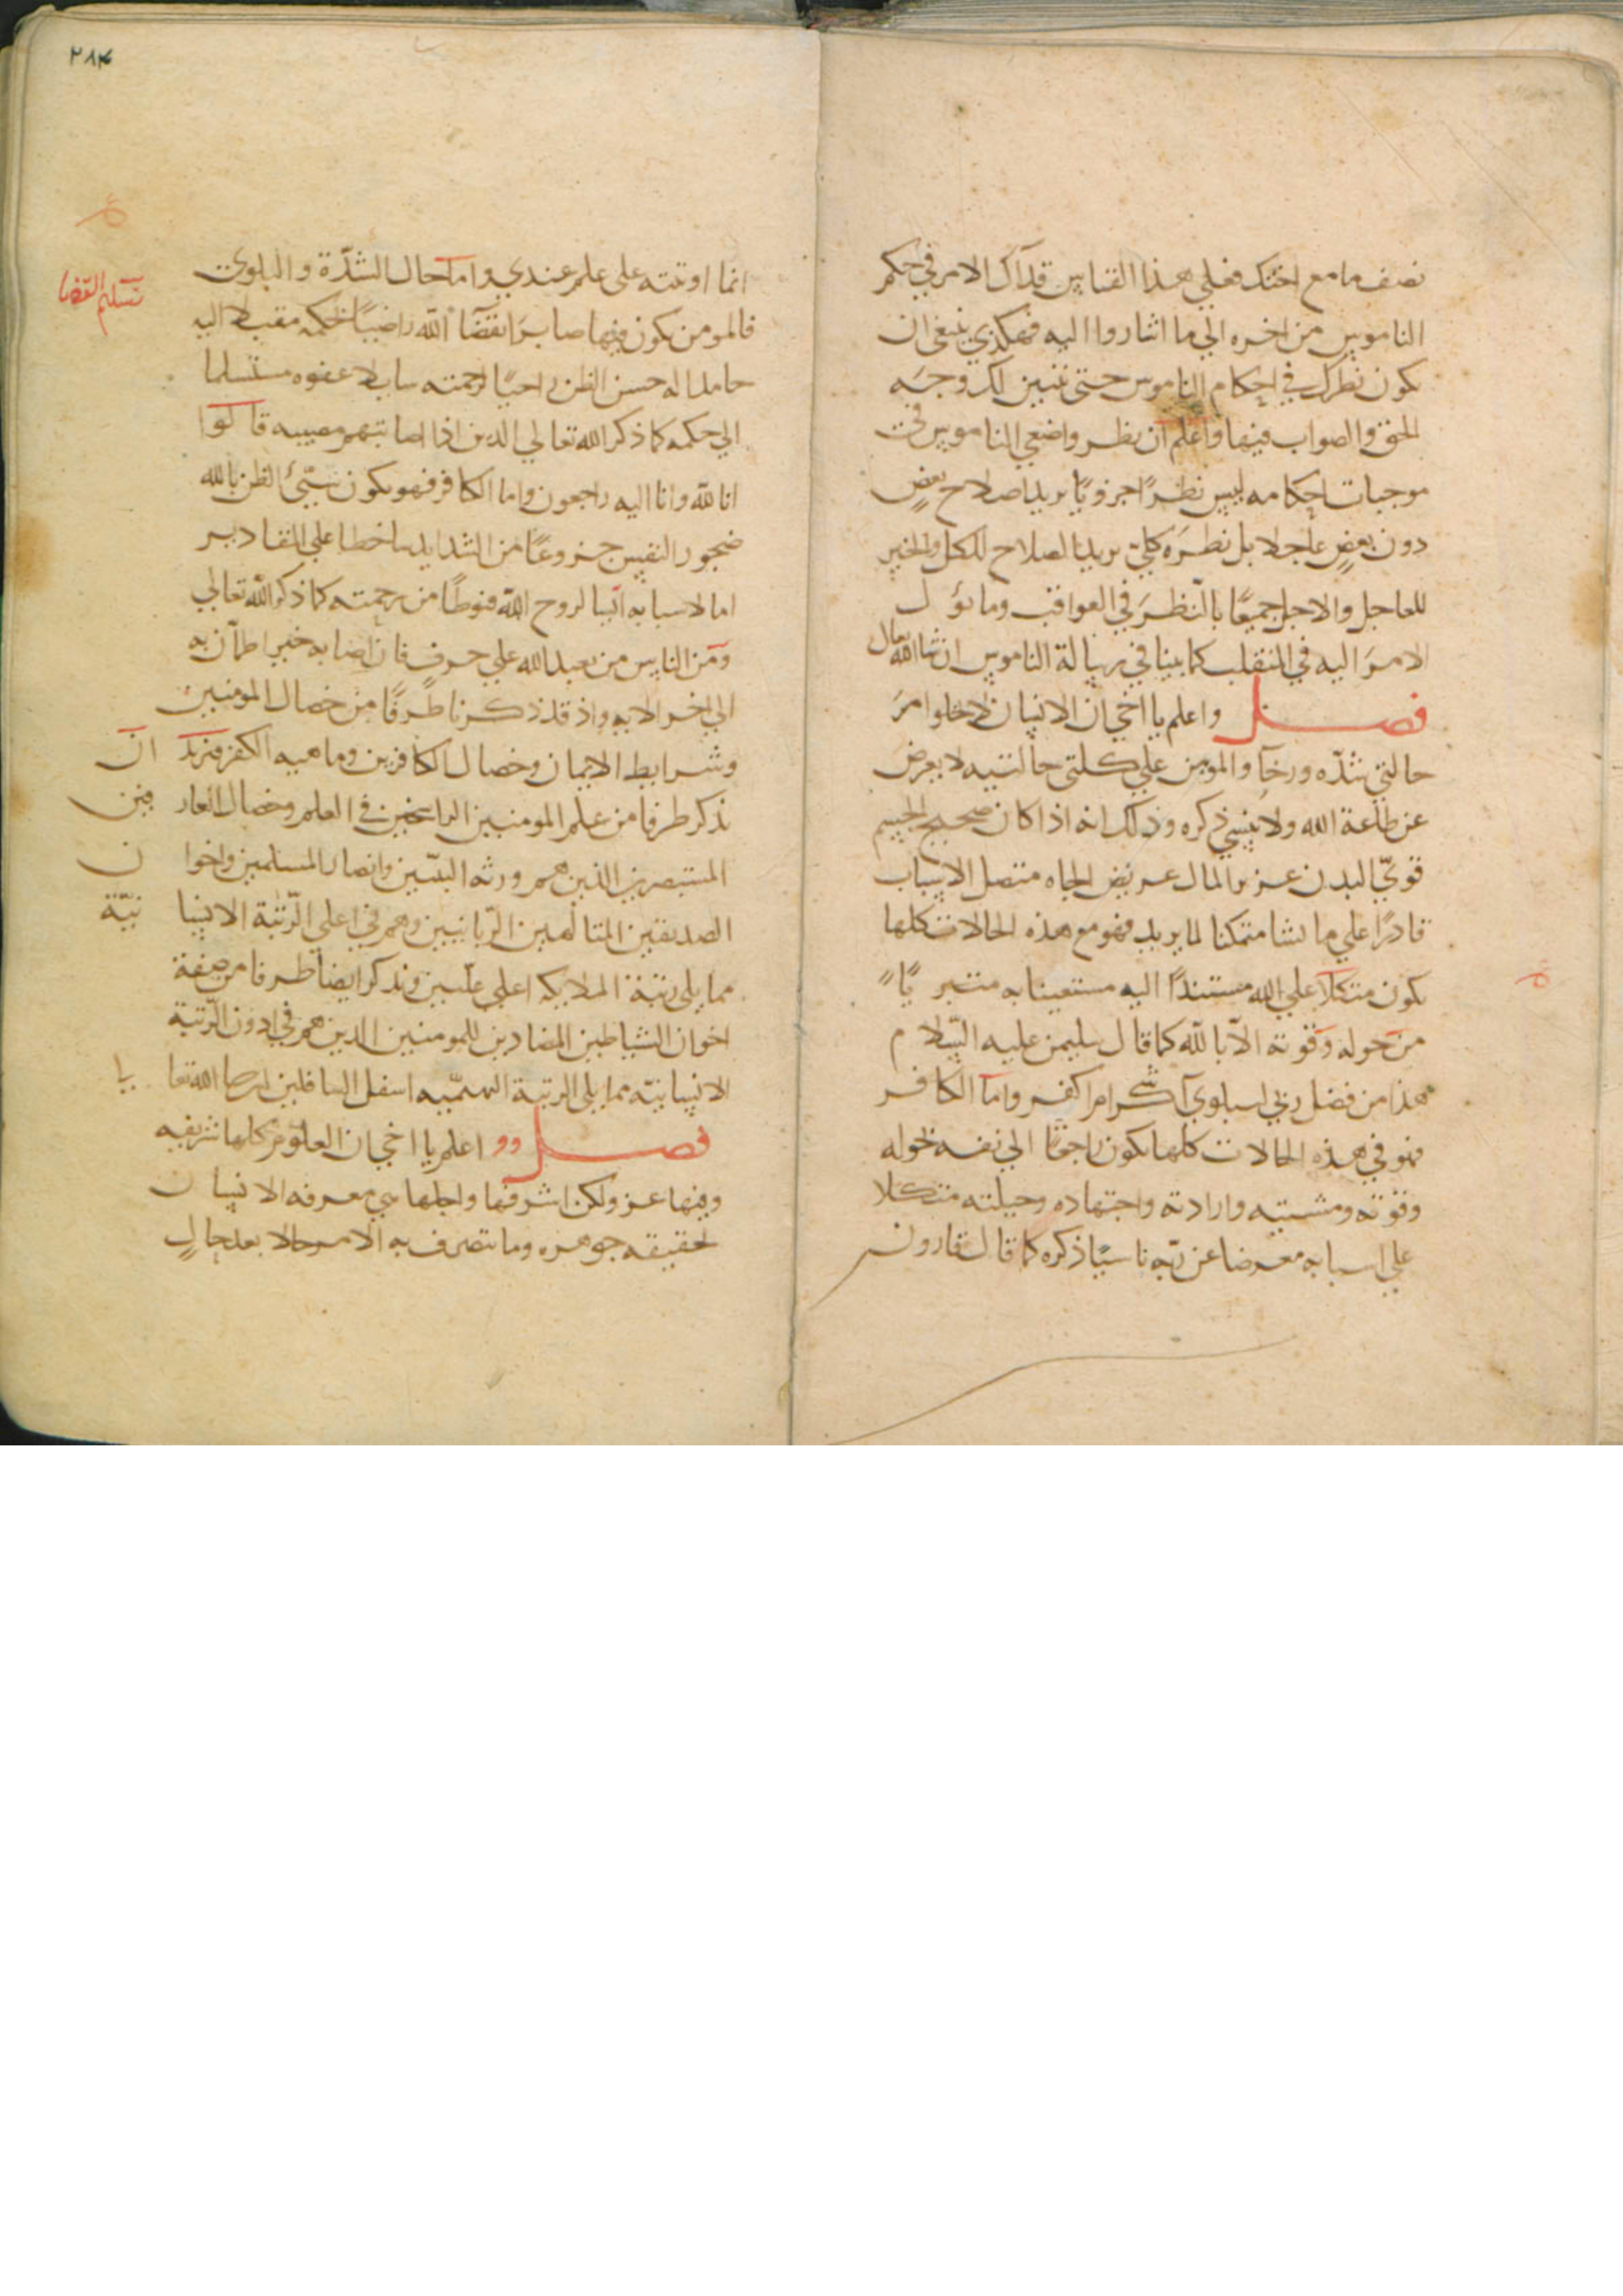 نصف ما مع اختك فعلي هذا القياس قد آل الامر في حكم
الناموس من اخره الي ما اشاروا اليه فهكذي ينبغي ان
يكون نظرك في احكام الناموس حتى يتبين لك وجه
الحق والصواب فيها واعلم ان نظر واضعي الناموس في
موجبات احكامه ليس نظرًا جزويًا يريد اصلاح بعضٍ
دون بعضٍ عاجلا بل نظره كلي يريد الصلاح للكل والخير
للعاجل والاجل جميعًا بالنظر في العواقب وما يؤل
الامر اليه في المنقلب كما بينا في رسالة الناموس ان شا الله تعالى
فصل واعلم يا اخي ان الانسان لا يخلوا من
حالتي شدّه ورخآ والمومن علي كلتى حالتيه لا يعرض
عن طاعة الله ولا ينسي ذكره وذلك انه اذا كان صحيح الجسم
قويّ البدن عزيز المال عريض الجاه متصل الاسباب
قادرًا علي ما يشا متمكنا لما يريد فهو مع هذه الحالات كلها
يكون متكلا علي الله مستندًا اليه مستعينا به متبريًا
من حوله وقوته الا بالله كما قال سليمن عليه السّلام
هذا من فضل ربي ليبلوني آشكر ام اكفر واما الكافر
فهو في هذه الحالات كلها يكون راجعًا الي نفسه لحوله
وقوته ومشيته وارادته واجتهاده وحيلته متكلا
علي اسبابه معرضا عن ربّه ناسيًا ذكره كما قال قارون
٢٨٤
انما اوتيته على علم عندي واما حال الشدّة والبلوي
تسليم القضا
فالمومن يكون فيها صابرًا لقضآ الله راضيًا لحكمه مقبلا اليه
حامدا له حسن الظن راجيًا لرحمته سايلا عفوه مستسلما
الي حكمه كما ذكر الله تعالي الذين اذا اصابتهم مصيبه قالوا
انا لله وانا اليه راجعون واما الكافر فهو يكون سيّئ الظن بالله
ضجور النفس جزوعًا من الشدايد ساخطا علي المقادير
اما لاسبابه آئسا لروح الله قنوطًا من رحمته كما ذكر الله تعالي
ومن الناس من يعبد الله علي حرف فان اصابه خير اطمأن به
الي اخر الايه واذ قد ذكرنا طرفًا من خصال المومنين
وشرايط الايمان وخصال الكافرين وما هيه الكفر فنريد ان
نذكر طرفا من علم المومنين الراسخين في العلم وخصال العارفين
المستبصرين الذين هم ورثه النبيّين وانصار المسلمين واخوان
الصديقين المتالهين الرّبانيين وهم في اعلي الرّتبة الانسانيّة
مما يلى رتبة الملايكه اعلي علّيين ونذكر ايضا طرفا من صفة
اخوان الشياطين المضادين للمومنين الذين هم في ادون الرّتبة
الانسانيّه مما يلى الرتبة البهيميّه اسفل السافلين
فصل اعلم يا اخي ان العلوم كلها شريفه
وفيها عز ولكن اشرفها واجلها هي معرفه الانسان
لحقيقه جوهره وما يتصرف به الامر حالا بعد حالٍ